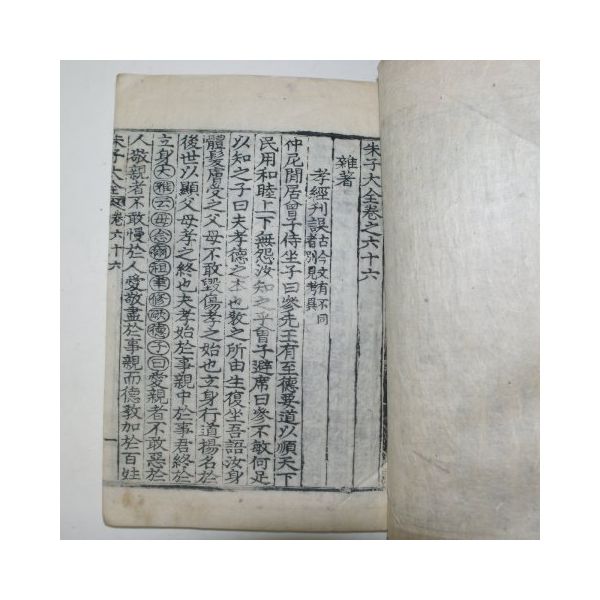 朱子大全卷之六十六
雜著
孝經刊誤 古今文有不同
者別見考異
仲尼閒居曾子侍坐子曰參先王有至德要道以順天下
民用和睦上下無怨汝知之乎曾子避席曰參不敏何足
以知之子曰夫孝德之本也敎之所由生復坐吾語汝身
體髮膚受之父母不敢毀傷孝之始也立身行道揚名於
後世以顯父母孝之終也夫孝始於事親中於事君終於
立身大雅云毋念爾祖聿修厥德子曰愛親者不敢惡於
人敬親者不敢慢於人愛敬盡於事親而德敎加於百姓
朱子大全 卷六十六 一